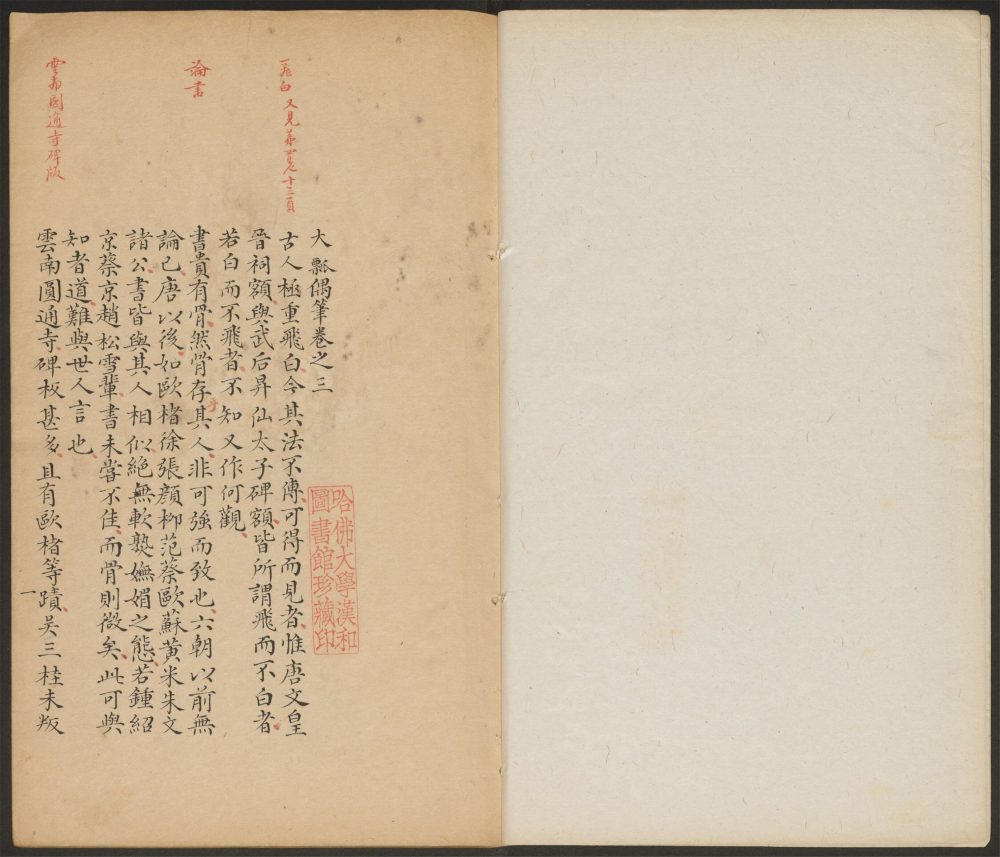 大瓢偶筆卷之三
飛白又見第四卷十三頁
古人極重飛白今其法不傳可得而見者惟唐文皇
晉祠額與武后昇仙太子碑額皆所謂飛而不白者
若白而不飛者不知又作何觀
論書
書貴有骨然骨存乎其人非可強而致也六朝以前無
論已唐以後如歐楮徐張顏柳范蔡歐蘇黃米朱文
諸公書皆與其人相似絕無軟熟嫵媚之態若鍾紹
京蔡京趙松雪輩書未嘗不佳而骨則微矣此可與
知者道難與世人言也
雲南圓通寺碑版
雲南圓通寺碑板甚多且有歐楮等蹟吳三桂未叛
一
哈佛大學漢和
圖書館珍藏印